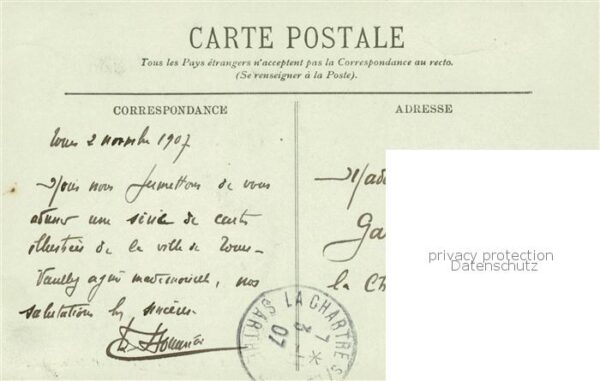 CARTE POSTALE
Tous les Pays étrangers n'acceptent pas la Correspondance au recto.
(Se renseigner à la Poste).
CORRESPONDANCE
ADRESSE
Tours 2 novembre 1907
Nous nous permettons de vous
adresser une série de cartes
illustrées de la ville de Tours
Veuillez agréer mademoiselle, nos
salutations les sincères
Ga
la Ch
privacy protection
Datenschutz
LA CHARTRE S/
SARTHE
07